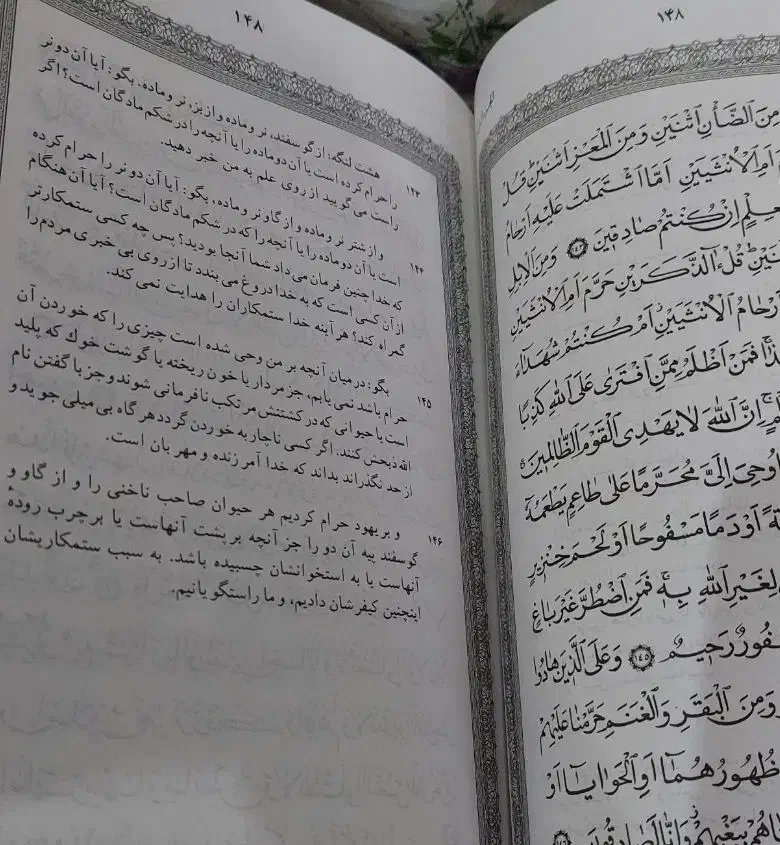 ۱۴۸
مِنَ الضَّأْنِ اثْنَيْنِ وَمِنَ الْمَعْزِ اثْنَيْنِ قُلْ
اَمِ الْاُنْثَيَيْنِ اَمَّا اشْتَمَلَتْ عَلَيْهِ اَرْحَامُ
اِنْ كُنْتُمْ صَادِقِينَ ﴿۱۴۳﴾ وَمِنَ الْاِبِلِ
قُلْ ءَالذَّكَرَيْنِ حَرَّمَ اَمِ الْاُنْثَيَيْنِ
اَرْحَامُ الْاُنْثَيَيْنِ اَمْ كُنْتُمْ شُهَدَاءَ
فَمَنْ اَظْلَمُ مِمَّنِ افْتَرَى عَلَى اللهِ كَذِبًا
اِنَّ اللهَ لَا يَهْدِى الْقَوْمَ الظَّالِمِينَ
اُوحِىَ اِلَىَّ مُحَرَّمًا عَلَى طَاعِمٍ يَطْعَمُهُ
اَوْ دَمًا مَسْفُوحًا اَوْ لَحْمَ خِنْزِيرٍ
لِغَيْرِ اللهِ بِهِ فَمَنِ اضْطُرَّ غَيْرَ بَاغٍ
رَحِيمٌ ﴿۱۴۵﴾ وَعَلَى الَّذِينَ هَادُوا
وَمِنَ الْبَقَرِ وَالْغَنَمِ حَرَّمْنَا عَلَيْهِمْ
ظُهُورُهُمَا اَوِ الْحَوَايَا اَوْ
بِبَغْيِهِمْ وَاِنَّا لَصَادِقُونَ
۱۴۸
۱۴۳ هشت لنگه: از گوسفند، نر و ماده و از بز، نر و ماده. بگو: آیا آن دو نر
را حرام کرده است یا آن دو ماده را یا آنچه را در شکم مادگان است؟ اگر
راست می گویید از روی علم به من خبر دهید.
۱۴۴ و از شتر نر و ماده و از گاو نر و ماده، بگو: آیا آن دو نر را حرام کرده
است یا آن دو ماده را یا آنچه را که در شکم مادگان است؟ آیا آن هنگام
که خدا چنین فرمان می داد شما آنجا بودید؟ پس چه کسی ستمکارتر
از آن کسی است که به خدا دروغ می بندد تا از روی بی خبری مردم را
گمراه کند؟ هر آینه خدا ستمکاران را هدایت نمی کند.
۱۴۵ بگو: در میان آنچه بر من وحی شده است چیزی را که خوردن آن
حرام باشد نمی یابم، جز مردار یا خون ریخته یا گوشت خوک که پلید
است یا حیوانی که در کشتنش مرتکب نافرمانی شوند و جز با گفتن نام
الله ذبحش کنند. اگر کسی ناچار به خوردن گردد هر گاه بی میلی جوید و
از حد نگذراند بداند که خدا آمرزنده و مهربان است.
۱۴۶ و بر یهود حرام کردیم هر حیوان صاحب ناخنی را و از گاو و
گوسفند پیه آن دو را جز آنچه بر پشت آنهاست یا بر چرب رودهٔ
آنهاست یا به استخوانشان چسبیده باشد. به سبب ستمکاریشان
اینچنین کیفرشان دادیم، و ما راستگویانیم.